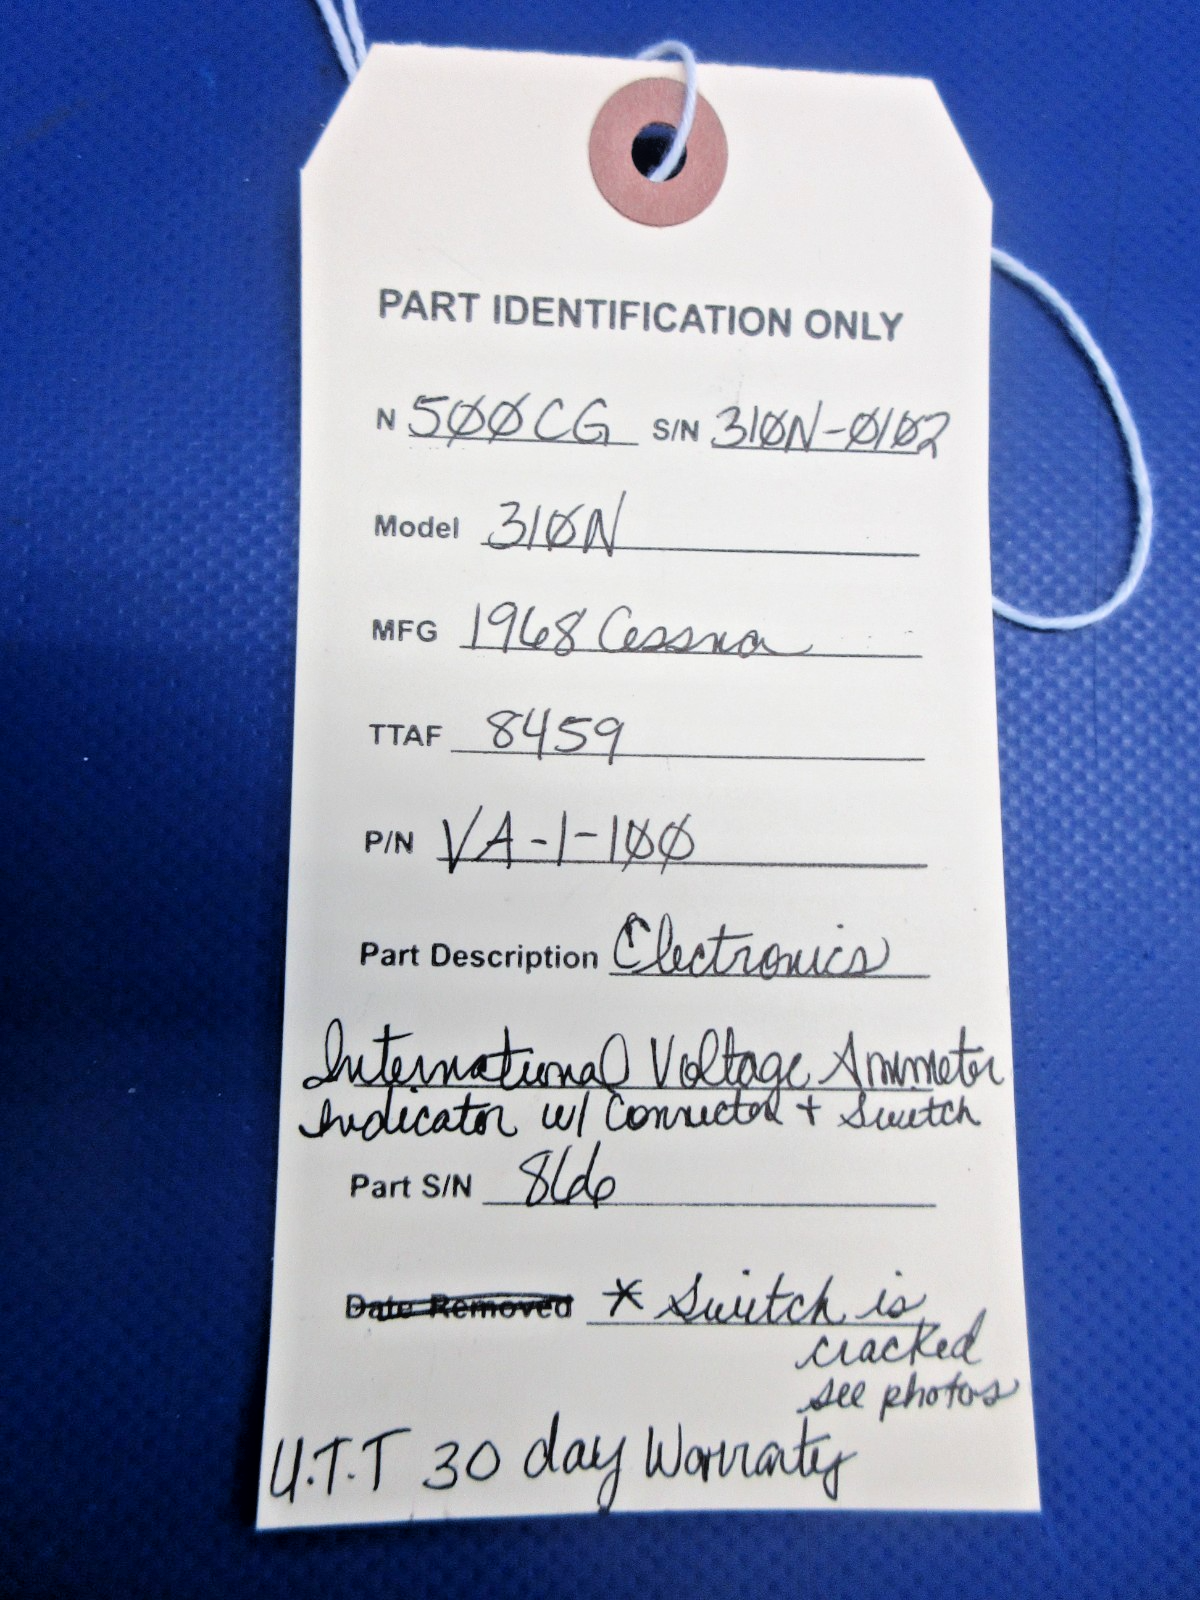 PART IDENTIFICATION ONLY
N 5ØØCG S/N 31ØN-Ø1Ø2
Model 31ØN
MFG 1968 Cessna
TTAF 8459
P/N VA-1-1ØØ
Part Description Electronics
International Voltage Ammeter
Indicator w/ Connector + Switch
Part S/N 866
Date Removed * Switch is
cracked
see photos
U.T.T 30 day Warranty